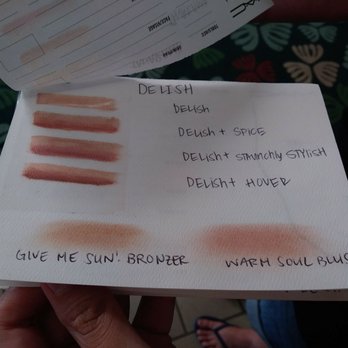 DELISH
DELISH
DELISH + SPICE
DELISH + STAUNCHLY STYLISH
DELISH + HOVER
GIVE ME SUN! BRONZER
WARM SOUL BLUS